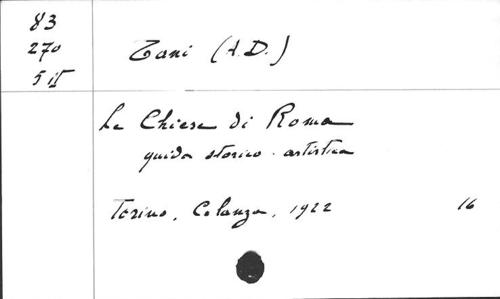 83
270
5 II
Tani (A.D.)
Le Chiese di Roma
guida storico-artistica
Torino, Celanza, 1922
16